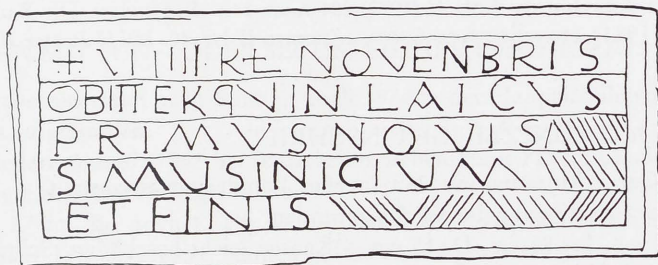 + VIIII KL NOVENBRIS
OBIIT EKQVIN LAICUS
PRIMVS NOVIS
SIMUS INICIUM
ET FINIS